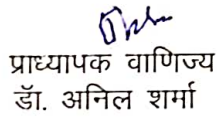 प्राध्यापक वाणिज्य
डॉ. अनिल शर्मा